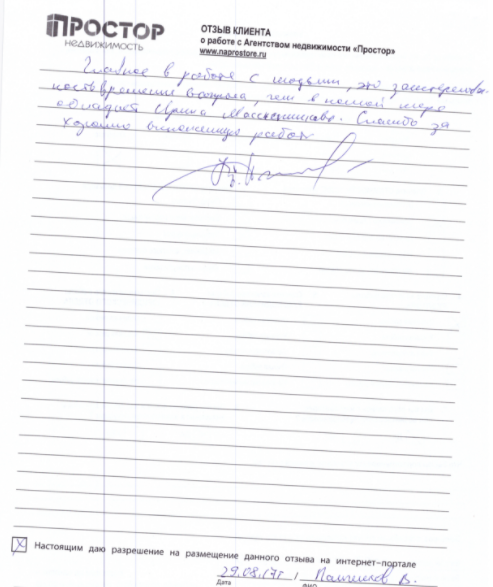 ПРОСТОР
НЕДВИЖИМОСТЬ
ОТЗЫВ КЛИЕНТА
о работе с Агентством недвижимости «Простор»
www.naprestore.ru
Главное в работе с людьми, это заинтересован-
ность в решение вопроса, чем в полной мере
обладает Ирина
Спасибо за
хорошо выполненную работу
Настоящим даю разрешение на размещение данного отзыва на интернет-портале
29.08.17г /
В.
Дата
ФИО